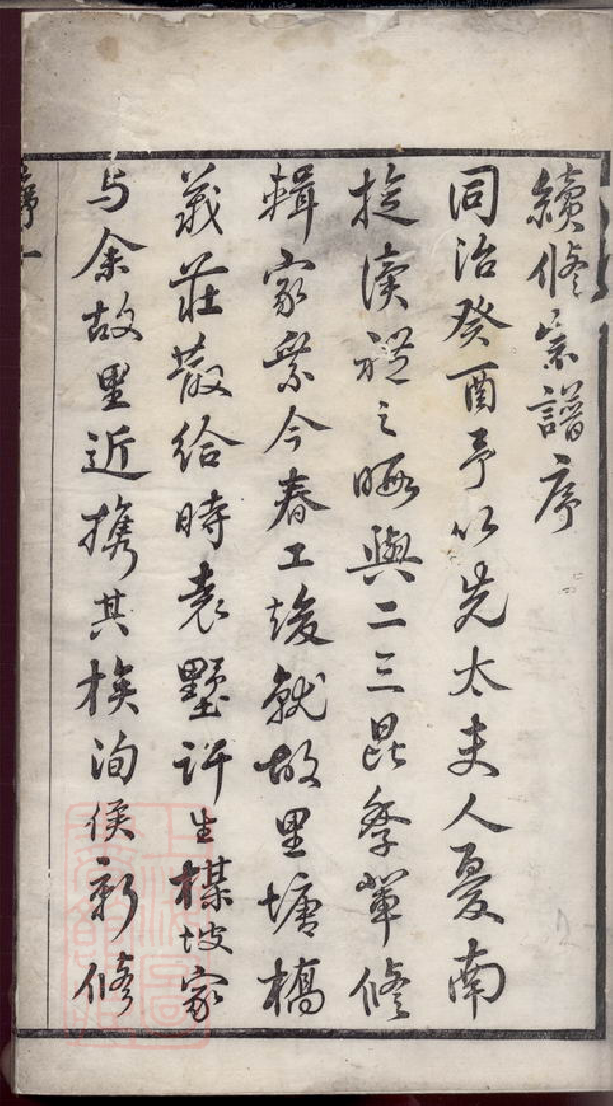 續修宗譜序
同治癸酉予以先太夫人憂南
旋讀禮之暇與二三昆季輩修
輯家乘今春工竣就故里塘橋
義莊散給時袁墅許生楳坡家
与余故里近攜其族洵侯新修
序一